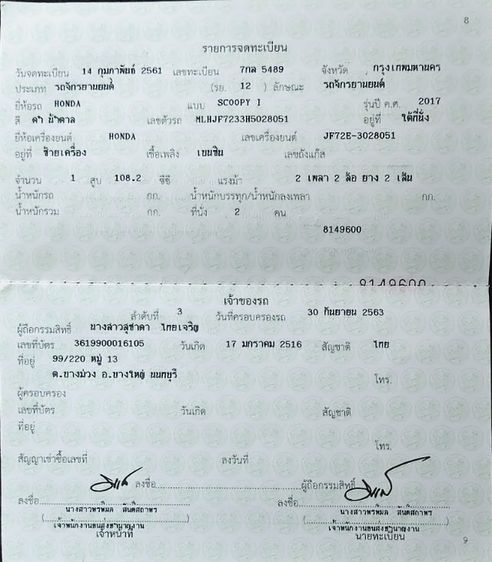 8
รายการจดทะเบียน
วันจดทะเบียน 14 กุมภาพันธ์ 2561 เลขทะเบียน 7กล 5489 จังหวัด กรุงเทพมหานคร
ประเภท รถจักรยานยนต์ (รย. 12 ) ลักษณะ รถจักรยานยนต์
ยี่ห้อรถ HONDA แบบ SCOOPY I รุ่นปี ค.ศ. 2017
สี ดำ น้ำตาล เลขตัวรถ MLHJF7233H5028051 อยู่ที่ ใต้ที่นั่ง
ยี่ห้อเครื่องยนต์ HONDA เลขเครื่องยนต์ JF72E-3028051
อยู่ที่ ซ้ายเครื่อง เชื้อเพลิง เบนซิน เลขถังแก๊ส
จำนวน 1 สูบ 108.2 ซีซี แรงม้า 2 เพลา 2 ล้อ ยาง 2 เส้น
น้ำหนักรถ กก. น้ำหนักบรรทุก/น้ำหนักลงเพลา กก.
น้ำหนักรวม กก. ที่นั่ง 2 คน
8149600
8149600
เจ้าของรถ
ลำดับที่ 3 วันที่ครอบครองรถ 30 กันยายน 2563
ผู้ถือกรรมสิทธิ์ นางสาวสุชาดา ไทยเจริญ
เลขที่บัตร 3619900016105 วันเกิด 17 มกราคม 2516 สัญชาติ ไทย
ที่อยู่ 99/220 หมู่ 13
ต.บางม่วง อ.บางใหญ่ นนทบุรี โทร.
ผู้ครอบครอง
เลขที่บัตร วันเกิด สัญชาติ
ที่อยู่
โทร.
สัญญาเช่าซื้อเลขที่ ลงวันที่
ลงชื่อ ผู้ถือกรรมสิทธิ์
ลงชื่อ ลงชื่อ
นางสาวพรพิมล สันติสถาพร นางสาวพรพิมล สันติสถาพร
(เจ้าพนักงานขนส่งชำนาญงาน) (เจ้าพนักงานขนส่งชำนาญงาน)
เจ้าหน้าที่ นายทะเบียน
9